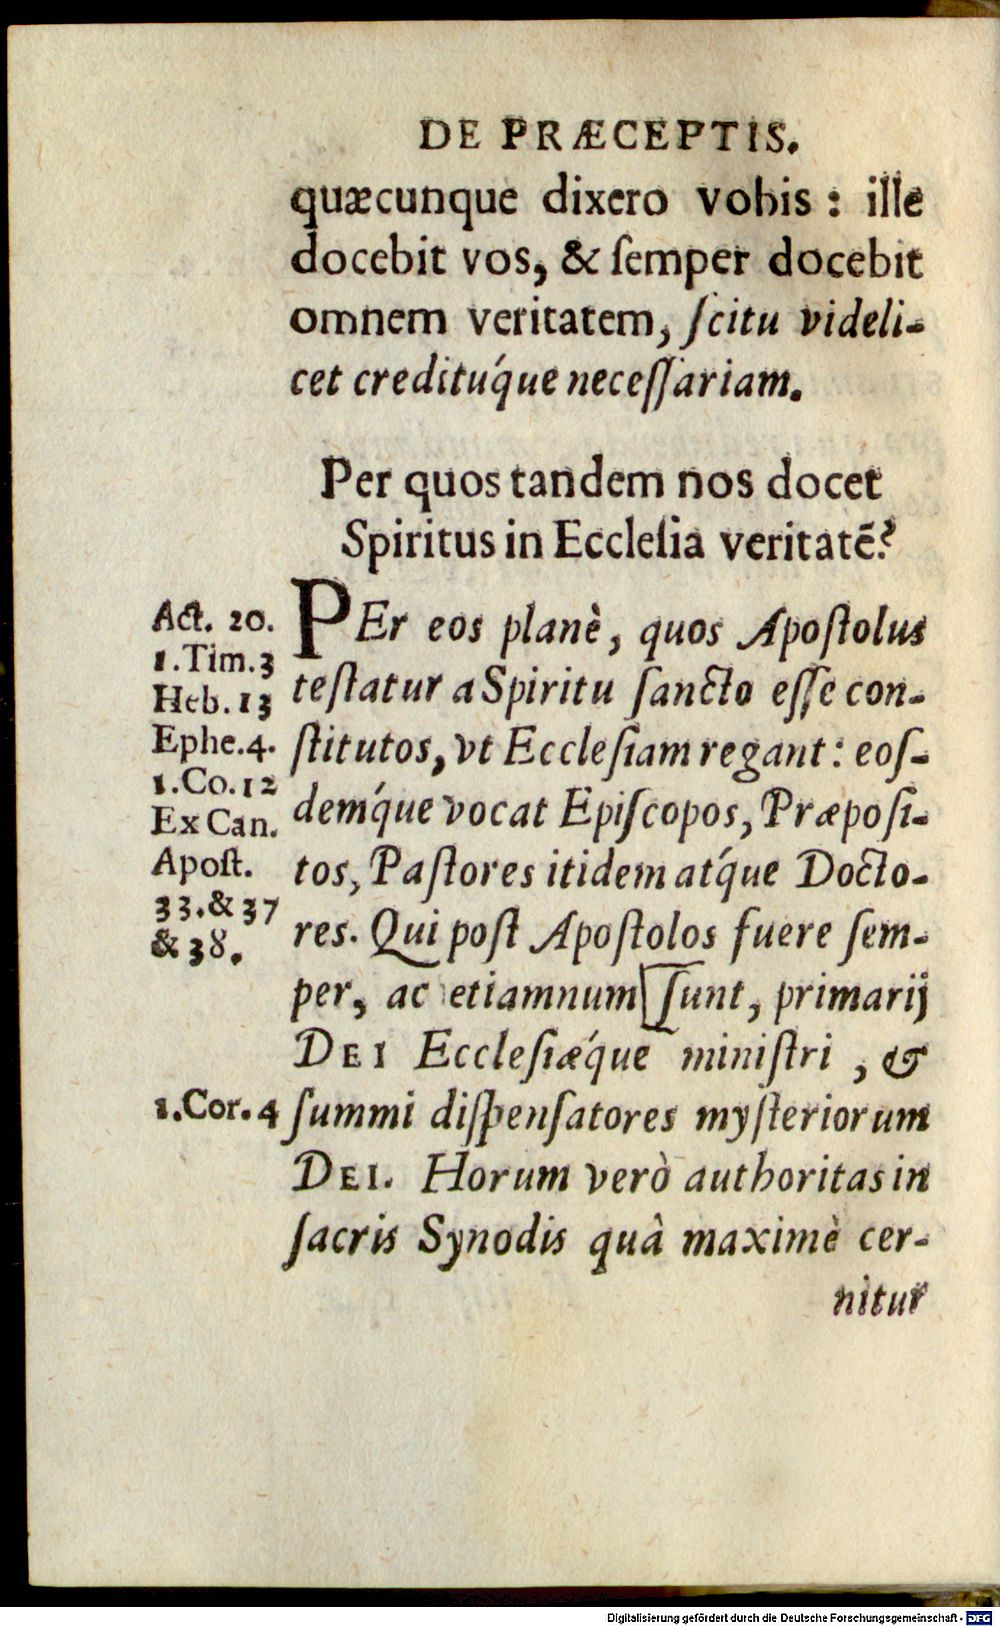 DE PRÆCEPTIS.
quæcunque dixero vobis : ille
docebit vos, & ſemper docebit
omnem veritatem, ſcitu videli-
cet creditúque neceſſariam.
Per quos tandem nos docet
Spiritus in Eccleſia veritatē?
PEr eos planè, quos Apoſtolus
teſtatur a Spiritu ſancto eſſe con-
ſtitutos, vt Eccleſiam regant : eoſ-
demq́ue vocat Epiſcopos, Præpoſi-
tos, Paſtores itidem atq́ue Docto-
res. Qui poſt Apoſtolos fuere ſem-
per, ac etiamnum ſunt, primarij
DEI Eccleſiæq́ue miniſtri, &
ſummi diſpenſatores myſteriorum
DEI. Horum verò authoritas in
ſacris Synodis quâ maximè cer-
nitur
Act. 20.
1.Tim.3
Heb.13
Ephe.4.
1.Co.12
Ex Can.
Apoſt.
33.& 37
& 38.
1.Cor.4
Digitalisierung gefördert durch die Deutsche Forschungsgemeinschaft - DFG